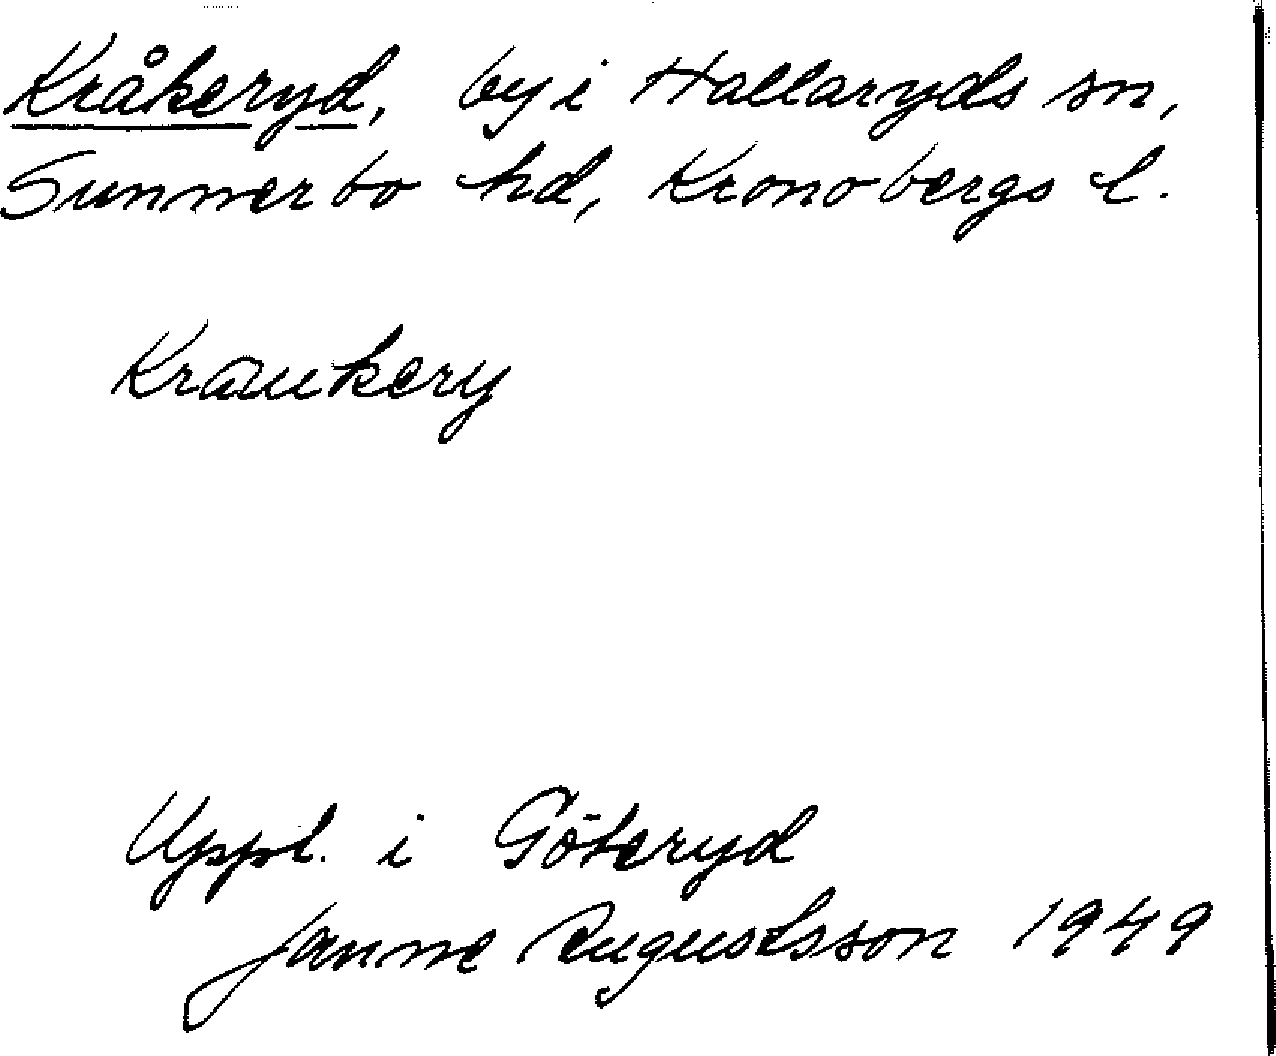 Kråkeryd, by i Hallaryds sn,
Sunnerbo hd, Kronobergs l.
Kraukery
Uppl. i Göteryd
Janne Augustsson 1949